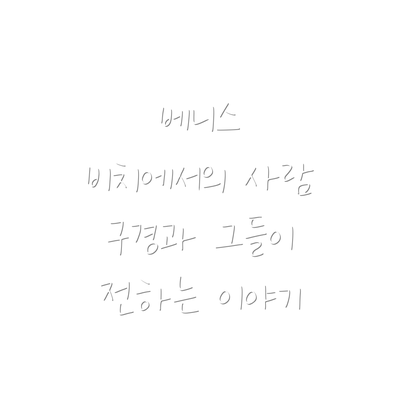 베니스
비치에서의 사람
구경과 그들이
전하는 이야기